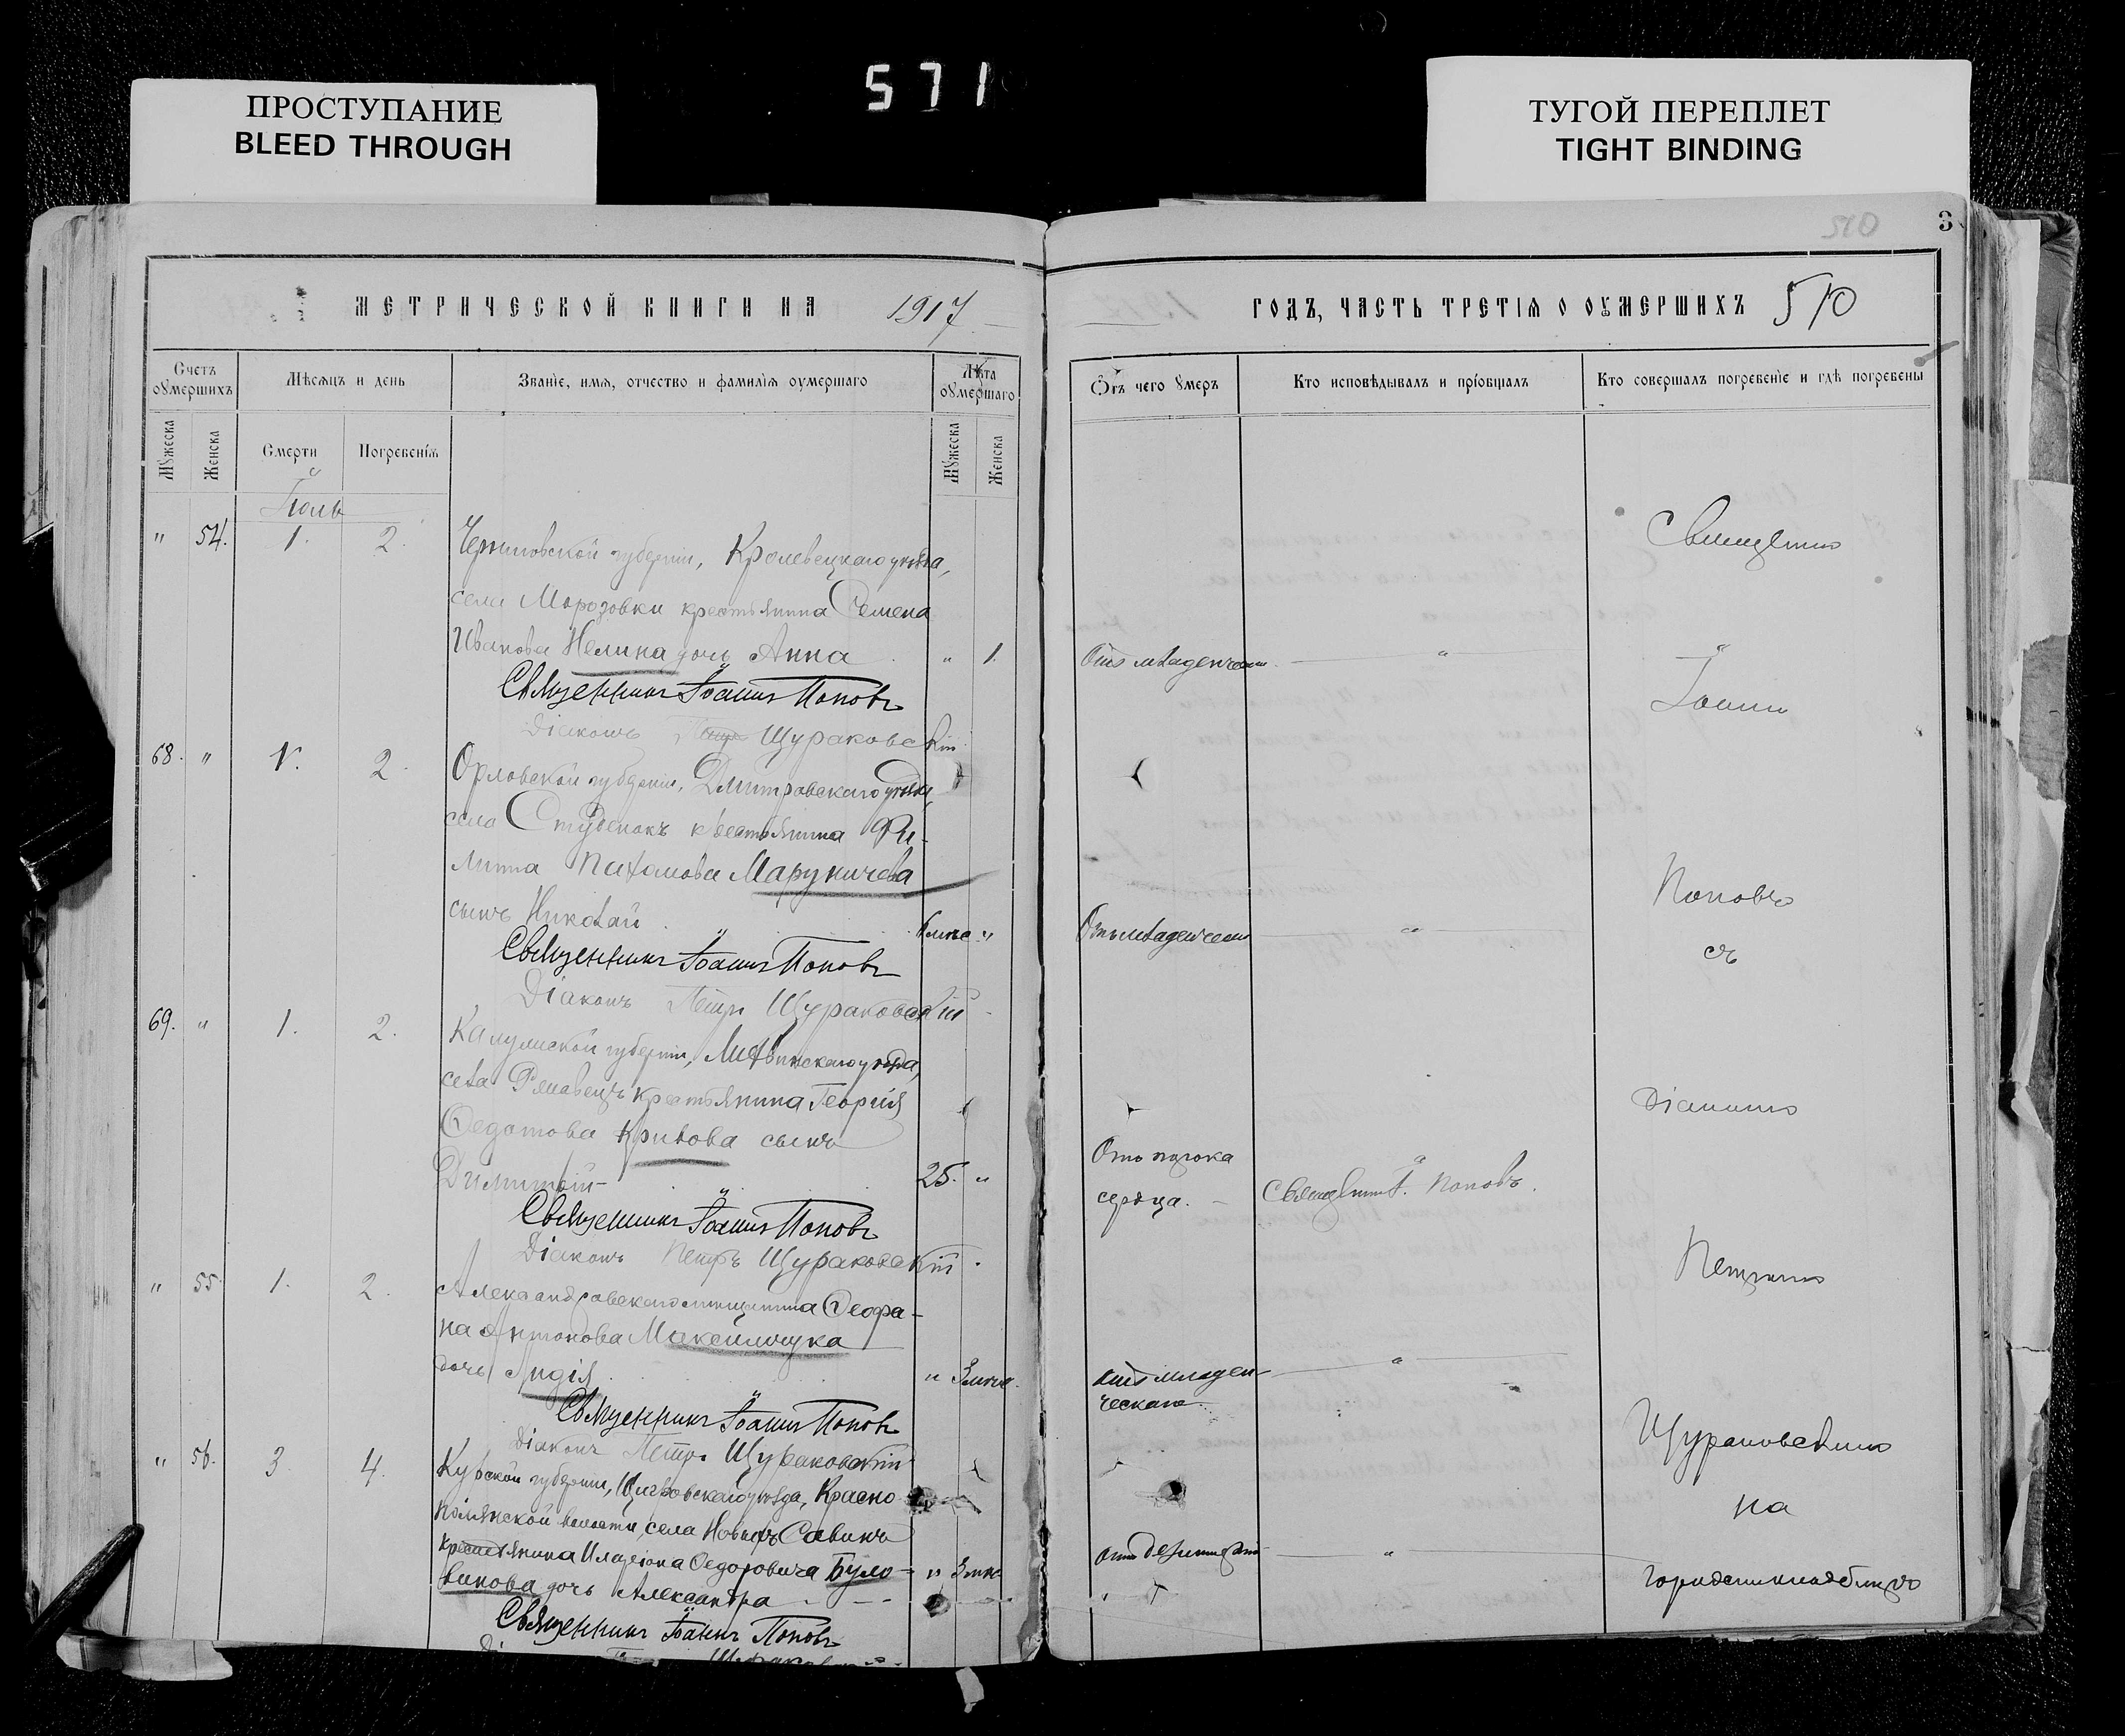 571
ПРОСТУПАНИЕ
BLEED THROUGH
ТУГОЙ ПЕРЕПЛЕТ
TIGHT BINDING
510
3
МЕТРИЧЕСКОЙ КНИГИ НА 1917
Счетъ оумершихъ
Мѣсяцъ и день
Званіе, имя, отчество и фамилія оумершаго
Лѣта оумершаго
Мужеска
Женска
Смерти
Погребенія
Мужеска
Женска
Іюль
" 54. 1. 2. Черниговской губерніи, Кролевецкаго уѣзда,
села Морозовки крестьянина Семена
Иванова Нелина дочь Анна " 1.
Священникъ Іоаннъ Поповъ
Діаконъ Петръ Щураковскій
68. " 1. 2. Орловской губерніи, Дмитровскаго уѣзда,
села Студенокъ крестьянина Фи-
липпа Пахомова Маруничева
сынъ Николай "
Священникъ Іоаннъ Поповъ
Діаконъ Петръ Щураковскій
69. " 1. 2. Калужской губерніи, Лихвинскаго уѣзда,
села крестьянина Георгія
Федотова Кривова сынъ
Димитрій 25. "
Священникъ Іоаннъ Поповъ
Діаконъ Петръ Щураковскій
" 55. 1. 2. Александровскаго мещанина Феофа-
на Антонова Максимчука
дочь Лидія " 3 мес.
Священникъ Іоаннъ Поповъ
Діаконъ Петръ Щураковскій
" 56. 3. 4. Курской губерніи, Щигровскаго уѣзда, Красно
полянской волости, села Новыхъ Савинъ
крестьянина Иларіона Федоровича Було-
винова дочь Александра " 3 мес.
Священникъ Іоаннъ Поповъ
Щураковскій
ГОДЪ, ЧАСТЬ ТРЕТІЯ О ОУМЕРШИХЪ 510
Отъ чего умеръ
Кто исповѣдывалъ и пріобщалъ
Кто совершалъ погребеніе и гдѣ погребены
Священникъ
Отъ младенческ. "
Іоаннъ
Поповъ
Отъ младенческ. "
съ
Діакономъ
Отъ порока
сердца. Священникъ І. Поповъ.
Петромъ
Отъ младен-
ческаго "
Щураковскимъ
на
Отъ дезинтеріи "
городскомъ кладбищѣ